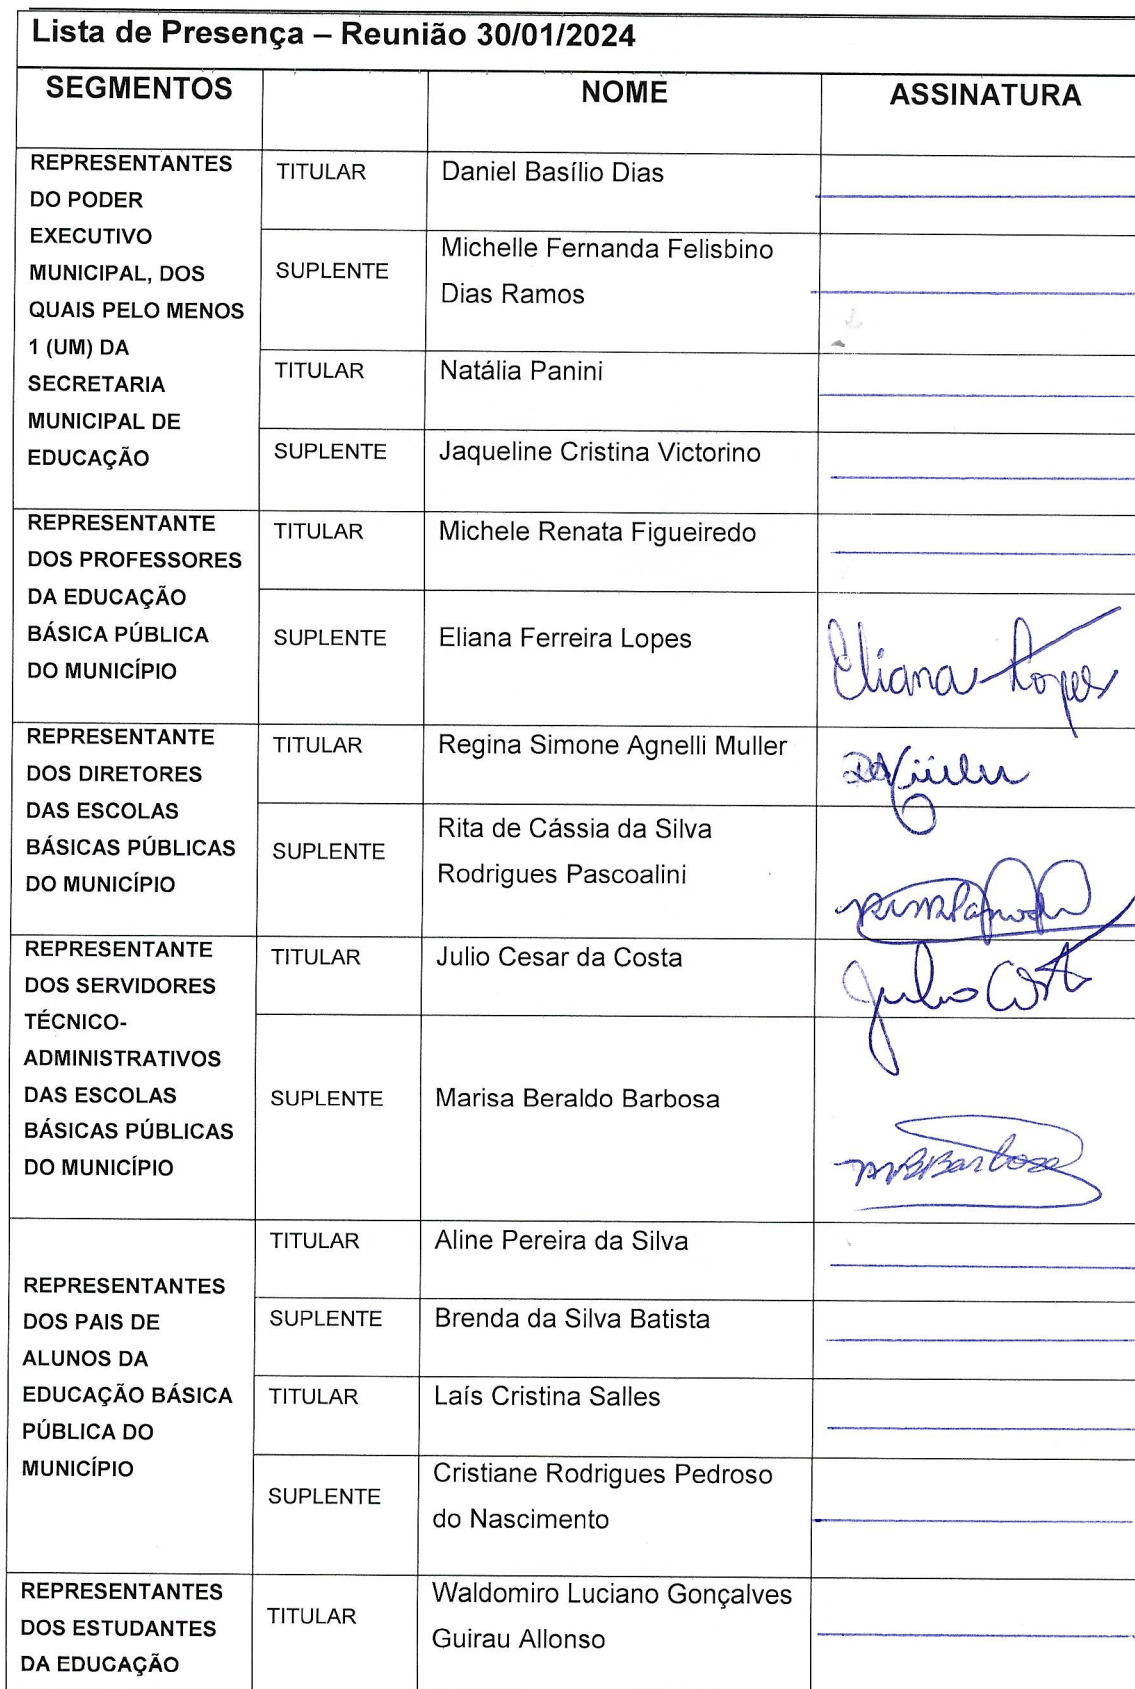 Lista de Presença – Reunião 30/01/2024
SEGMENTOS
NOME
ASSINATURA
REPRESENTANTES
DO PODER
EXECUTIVO
MUNICIPAL, DOS
QUAIS PELO MENOS
1 (UM) DA
SECRETARIA
MUNICIPAL DE
EDUCAÇÃO
TITULAR
Daniel Basílio Dias
SUPLENTE
Michelle Fernanda Felisbino
Dias Ramos
TITULAR
Natália Panini
SUPLENTE
Jaqueline Cristina Victorino
REPRESENTANTE
DOS PROFESSORES
DA EDUCAÇÃO
BÁSICA PÚBLICA
DO MUNICÍPIO
TITULAR
Michele Renata Figueiredo
SUPLENTE
Eliana Ferreira Lopes
Eliana Lopes
REPRESENTANTE
DOS DIRETORES
DAS ESCOLAS
BÁSICAS PÚBLICAS
DO MUNICÍPIO
TITULAR
Regina Simone Agnelli Muller
SUPLENTE
Rita de Cássia da Silva
Rodrigues Pascoalini
REPRESENTANTE
DOS SERVIDORES
TÉCNICO-
ADMINISTRATIVOS
DAS ESCOLAS
BÁSICAS PÚBLICAS
DO MUNICÍPIO
TITULAR
Julio Cesar da Costa
Julio Costa
SUPLENTE
Marisa Beraldo Barbosa
MBBarbosa
REPRESENTANTES
DOS PAIS DE
ALUNOS DA
EDUCAÇÃO BÁSICA
PÚBLICA DO
MUNICÍPIO
TITULAR
Aline Pereira da Silva
SUPLENTE
Brenda da Silva Batista
TITULAR
Laís Cristina Salles
SUPLENTE
Cristiane Rodrigues Pedroso
do Nascimento
REPRESENTANTES
DOS ESTUDANTES
DA EDUCAÇÃO
TITULAR
Waldomiro Luciano Gonçalves
Guirau Allonso